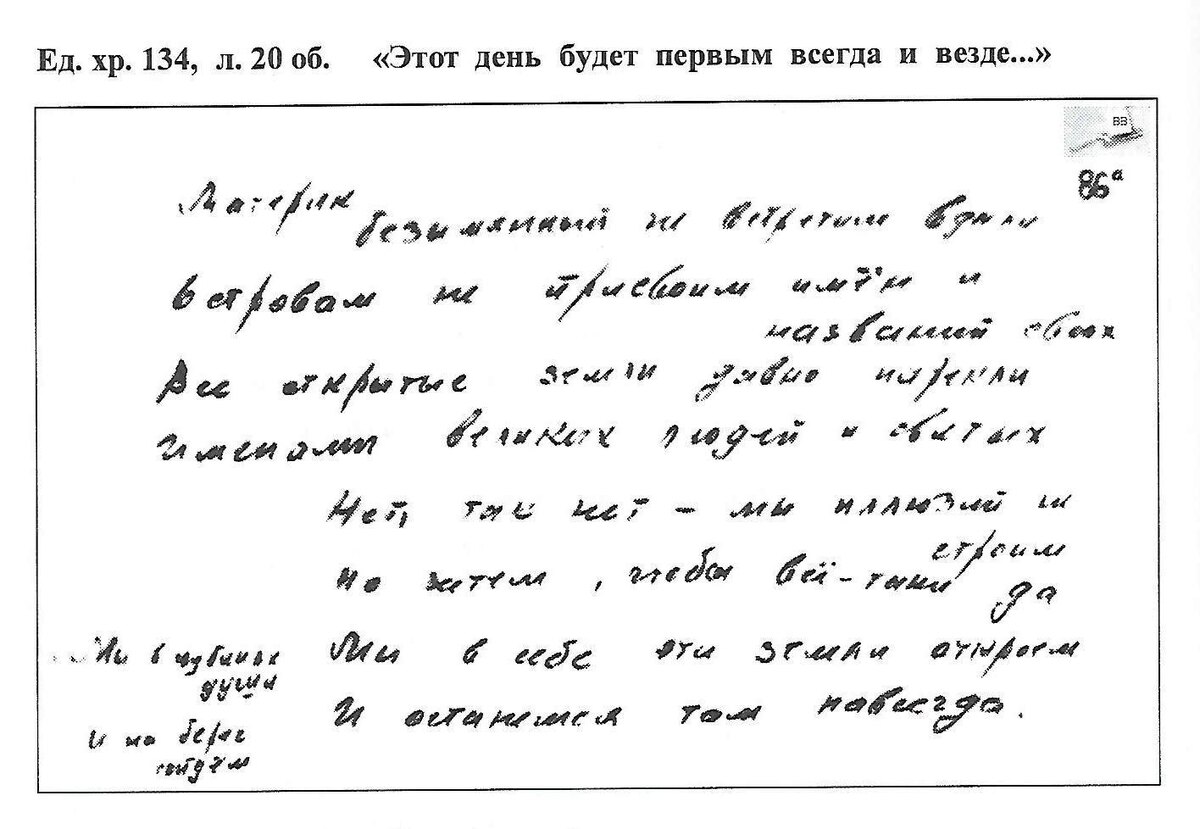 Ед. хр. 134, л. 20 об. «Этот день будет первым всегда и везде...»
ВВ
86а
Материк безымянный не встретим вдали
Островам не присвоим имён и
названий своих
Все открытые земли давно нарекли
Именами великих людей и святых
Нет, так нет – мы иллюзий не
строим
но хотим, чтобы всё-таки да
Мы в себе эти земли откроем
И останемся там навсегда.
Мы в глубинах
души
и на берег
сойдём